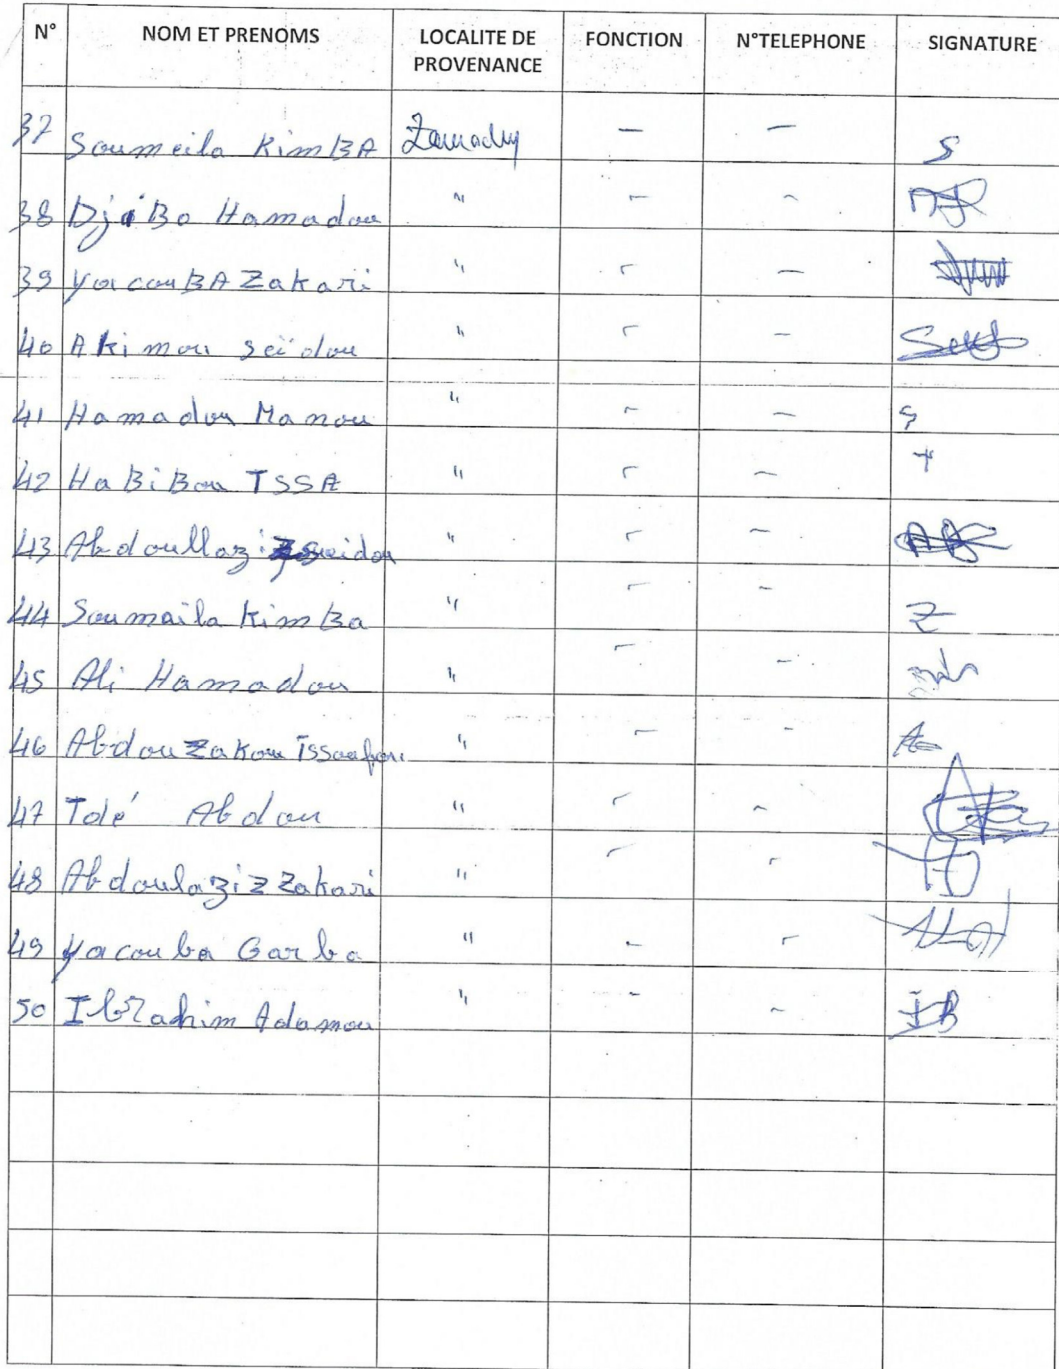 N° NOM ET PRENOMS LOCALITE DE PROVENANCE FONCTION N°TELEPHONE SIGNATURE
37 Soumeila KimBA — — S
38 DjiBo Hamadou " - -
39 YacouBA Zakari " - —
40 Akimou Seïdou " - -
41 Hamadou Manou " - -
42 HaBiBou ISSA " - - +
43 Abdoullaziz Seidou " - -
44 Soumaila KimBa " - - Z
45 Ali Hamadou " - -
46 Abdou Zakou " - -
47 Tolé Abdou " - -
48 Abdoulaziz Zakari " - -
49 Yacouba Garba " - -
50 Ibrahim Adamou " - - IB